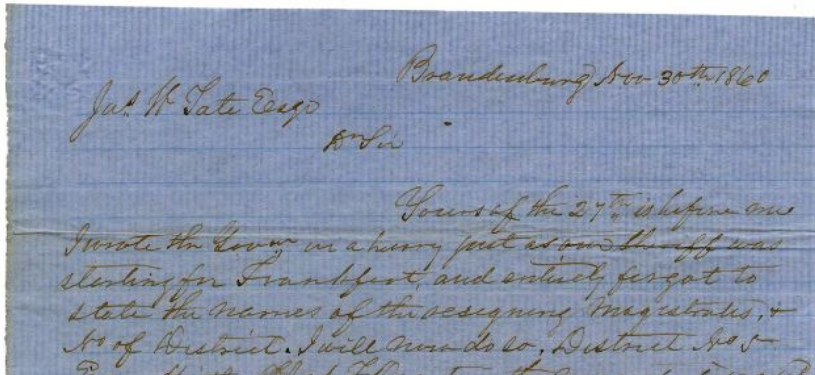 Brandenburg Nov 30th 1860
Jas W Tate Esqr
Dr Sir
Yours of the 27th is before me
I wrote the Govnr in a hurry just as our Sheriff was
starting for Frankfort, and entirely forgot to
state the names of the resigning Magistrates, &
No of District. I will now do so. District No 5